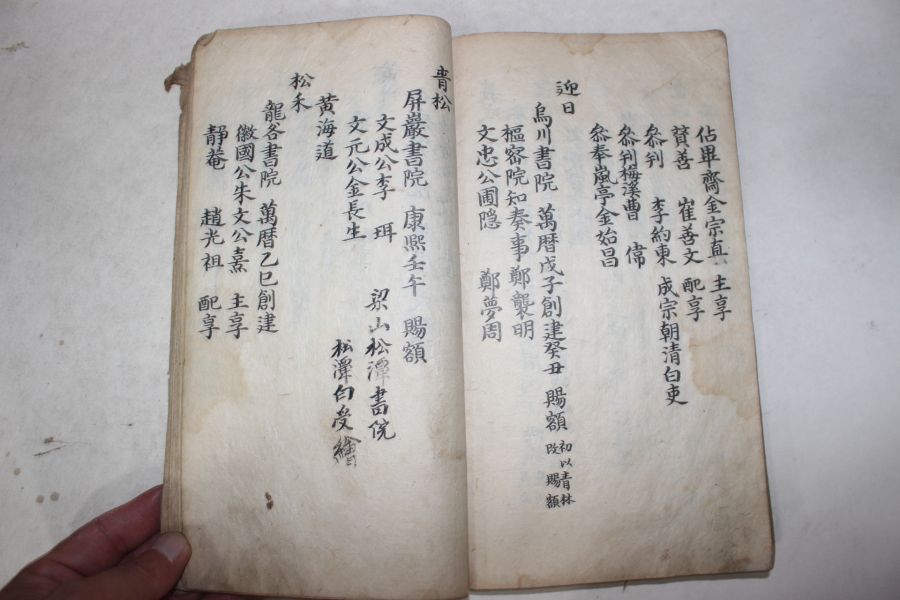 佔畢齋金宗直 主享
賛善 崔善文 配享
叅判 李約東 成宗朝清白吏
叅判梅溪曹 偉
叅奉嵐亭金始昌
迎日
烏川書院 萬曆戊子創建癸丑 賜額 初以青林
改 賜額
樞密院知奏事鄭襲明
文忠公圃隐 鄭夢周
青松
屏巖書院 康熙壬午 賜額
文成公李 珥 梁山松潭書院
文元公金長生 松潭白受繪
黄海道
松禾
龍谷書院 萬曆乙巳創建
徽國公朱文公熹 主享
靜菴 趙光祖 配享